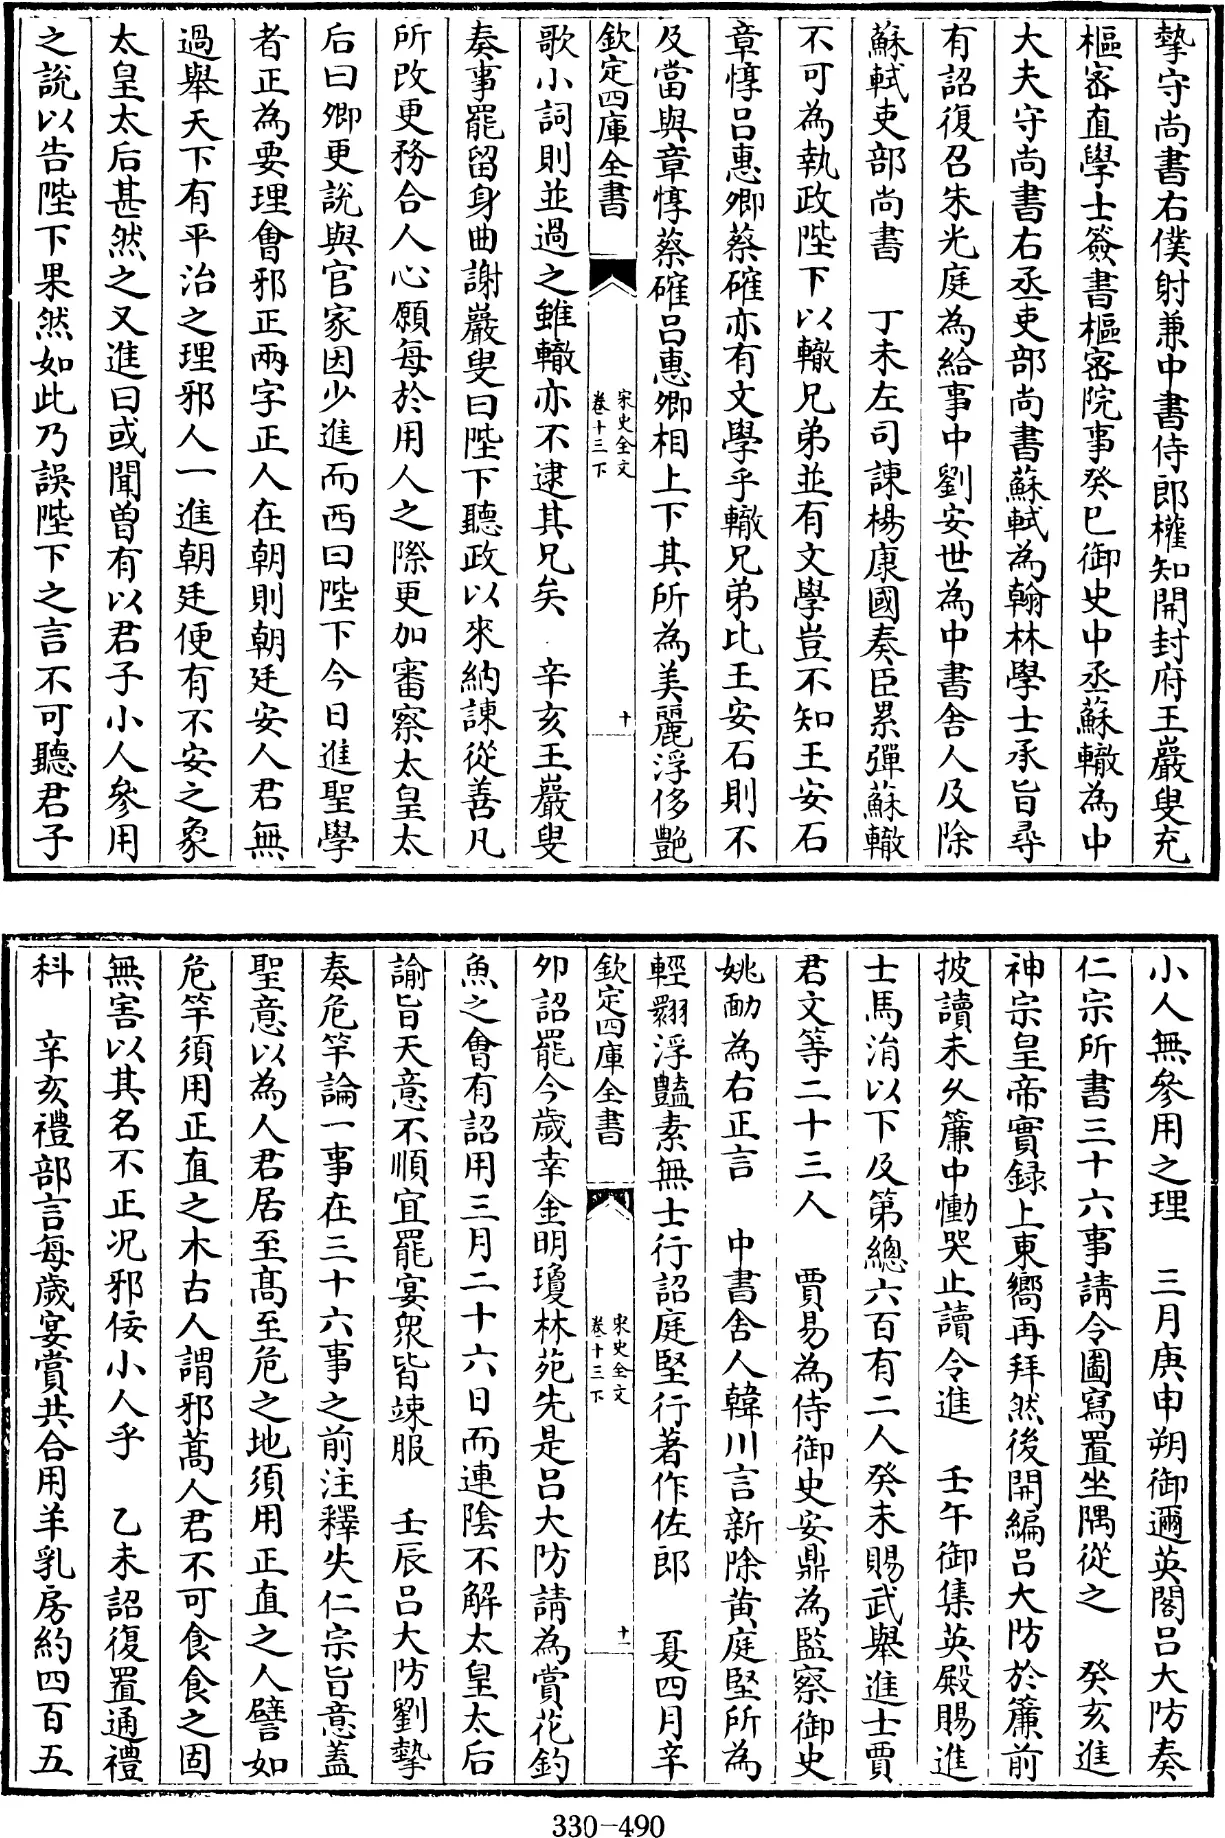 摯守尚書右僕射兼中書侍郎權知開封府王巖叟充
樞宻直學士簽書樞宻院事癸巳御史中丞蘇轍為中
大夫守尚書右丞吏部尚書蘇軾為翰林學士承旨尋
有詔復召朱光庭為給事中劉安世為中書舍人及除
蘇軾吏部尚書　丁未左司諫楊康國奏臣累彈蘇轍
不可為執政陛下以轍兄弟並有文學豈不知王安石
章惇吕惠卿蔡確亦有文學乎轍兄弟比王安石則不
及當與章惇蔡確吕惠卿相上下其所為美麗浮侈艶
欽定四庫全書
宋史全文
卷十三下
十
歌小詞則並過之雖轍亦不逮其兄矣　辛亥王巖叟
奏事罷留身曲謝巖叟曰陛下聽政以來納諫從善凡
所改更務合人心願每於用人之際更加審察太皇太
后曰卿更説與官家因少進而西曰陛下今日進聖學
者正為要理會邪正兩字正人在朝則朝廷安人君無
過舉天下有平治之理邪人一進朝廷便有不安之象
太皇太后甚然之又進曰或聞曽有以君子小人參用
之説以告陛下果然如此乃誤陛下之言不可聽君子
小人無參用之理　三月庚申朔御邇英閣吕大防奏
仁宗所書三十六事請令圖寫置坐隅從之　癸亥進
神宗皇帝實録上東嚮再拜然後開編吕大防於簾前
披讀未乆簾中慟哭止讀令進　壬午御集英殿賜進
士馬涓以下及第總六百有二人癸未賜武舉進士賈
君文等二十三人　賈易為侍御史安鼎為監察御史
姚勔為右正言　中書舍人韓川言新除黄庭堅所為
輕翾浮豔素無士行詔庭堅行著作佐郎　夏四月辛
欽定四庫全書
宋史全文
卷十三下
十一
夘詔罷今歲幸金明瓊林苑先是吕大防請為賞花釣
魚之會有詔用三月二十六日而連隂不解太皇太后
諭旨天意不順宜罷宴衆皆竦服　壬辰吕大防劉摯
奏危竿論一事在三十六事之前注釋失仁宗旨意葢
聖意以為人君居至髙至危之地須用正直之人譬如
危竿須用正直之木古人謂邪蒿人君不可食食之固
無害以其名不正况邪佞小人乎　乙未詔復置通禮
科　辛亥禮部言每歲宴賞共合用羊乳房約四百五
330-490